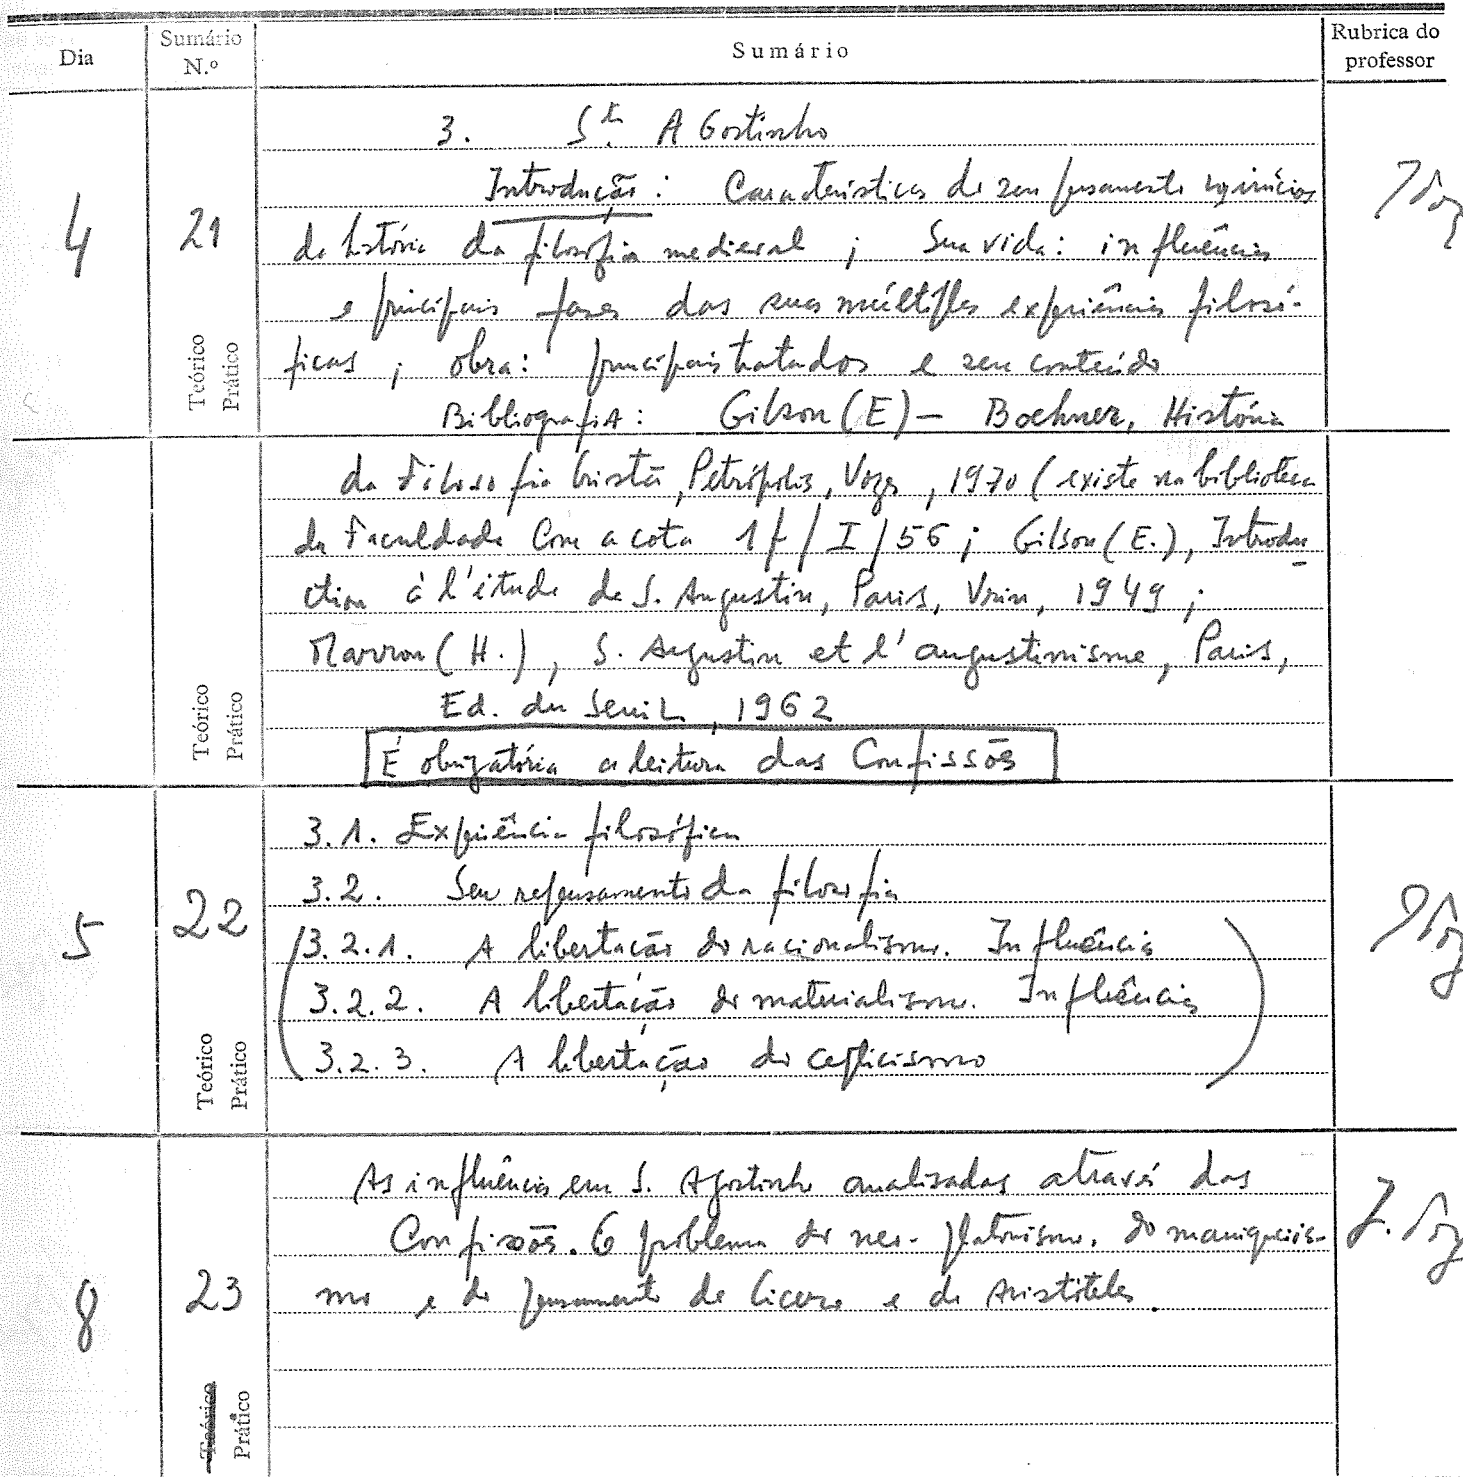 Dia
Sumário N.º
Sumário
Rubrica do professor
3. Sto. Agostinho
4
21
Introdução: Características do seu pensamento
da história da filosofia medieval; Sua vida: influências
e principais fases das suas múltiplas experiências filosó-
ficas; obra: principais tratados e seu conteúdo
Teórico
Prático
Bibliografia: Gilson (E) – Boehner, História
da Filosofia Cristã, Petrópolis, Vozes, 1970 (existe na biblioteca
da Faculdade com a cota 1f/I/56; Gilson (E.), Introdu
ction à l'étude de S. Augustin, Paris, Vrin, 1949;
Marrou (H.), S. Augustin et l'augustinisme, Paris,
Ed. du Seuil, 1962
É obrigatória a leitura das Confissões
Teórico
Prático
5
22
3.1. Experiência filosófica
3.2. Seu repensamento da filosofia
3.2.1. A libertação do racionalismo. Influência
3.2.2. A libertação do materialismo. Influências
3.2.3. A libertação do cepticismo
Teórico
Prático
8
23
As influências em S. Agostinho analisadas através das
Confissões. O problema do neo-platonismo, do maniqueis-
mo e do pensamento de Cícero e de Aristóteles.
Teórico
Prático